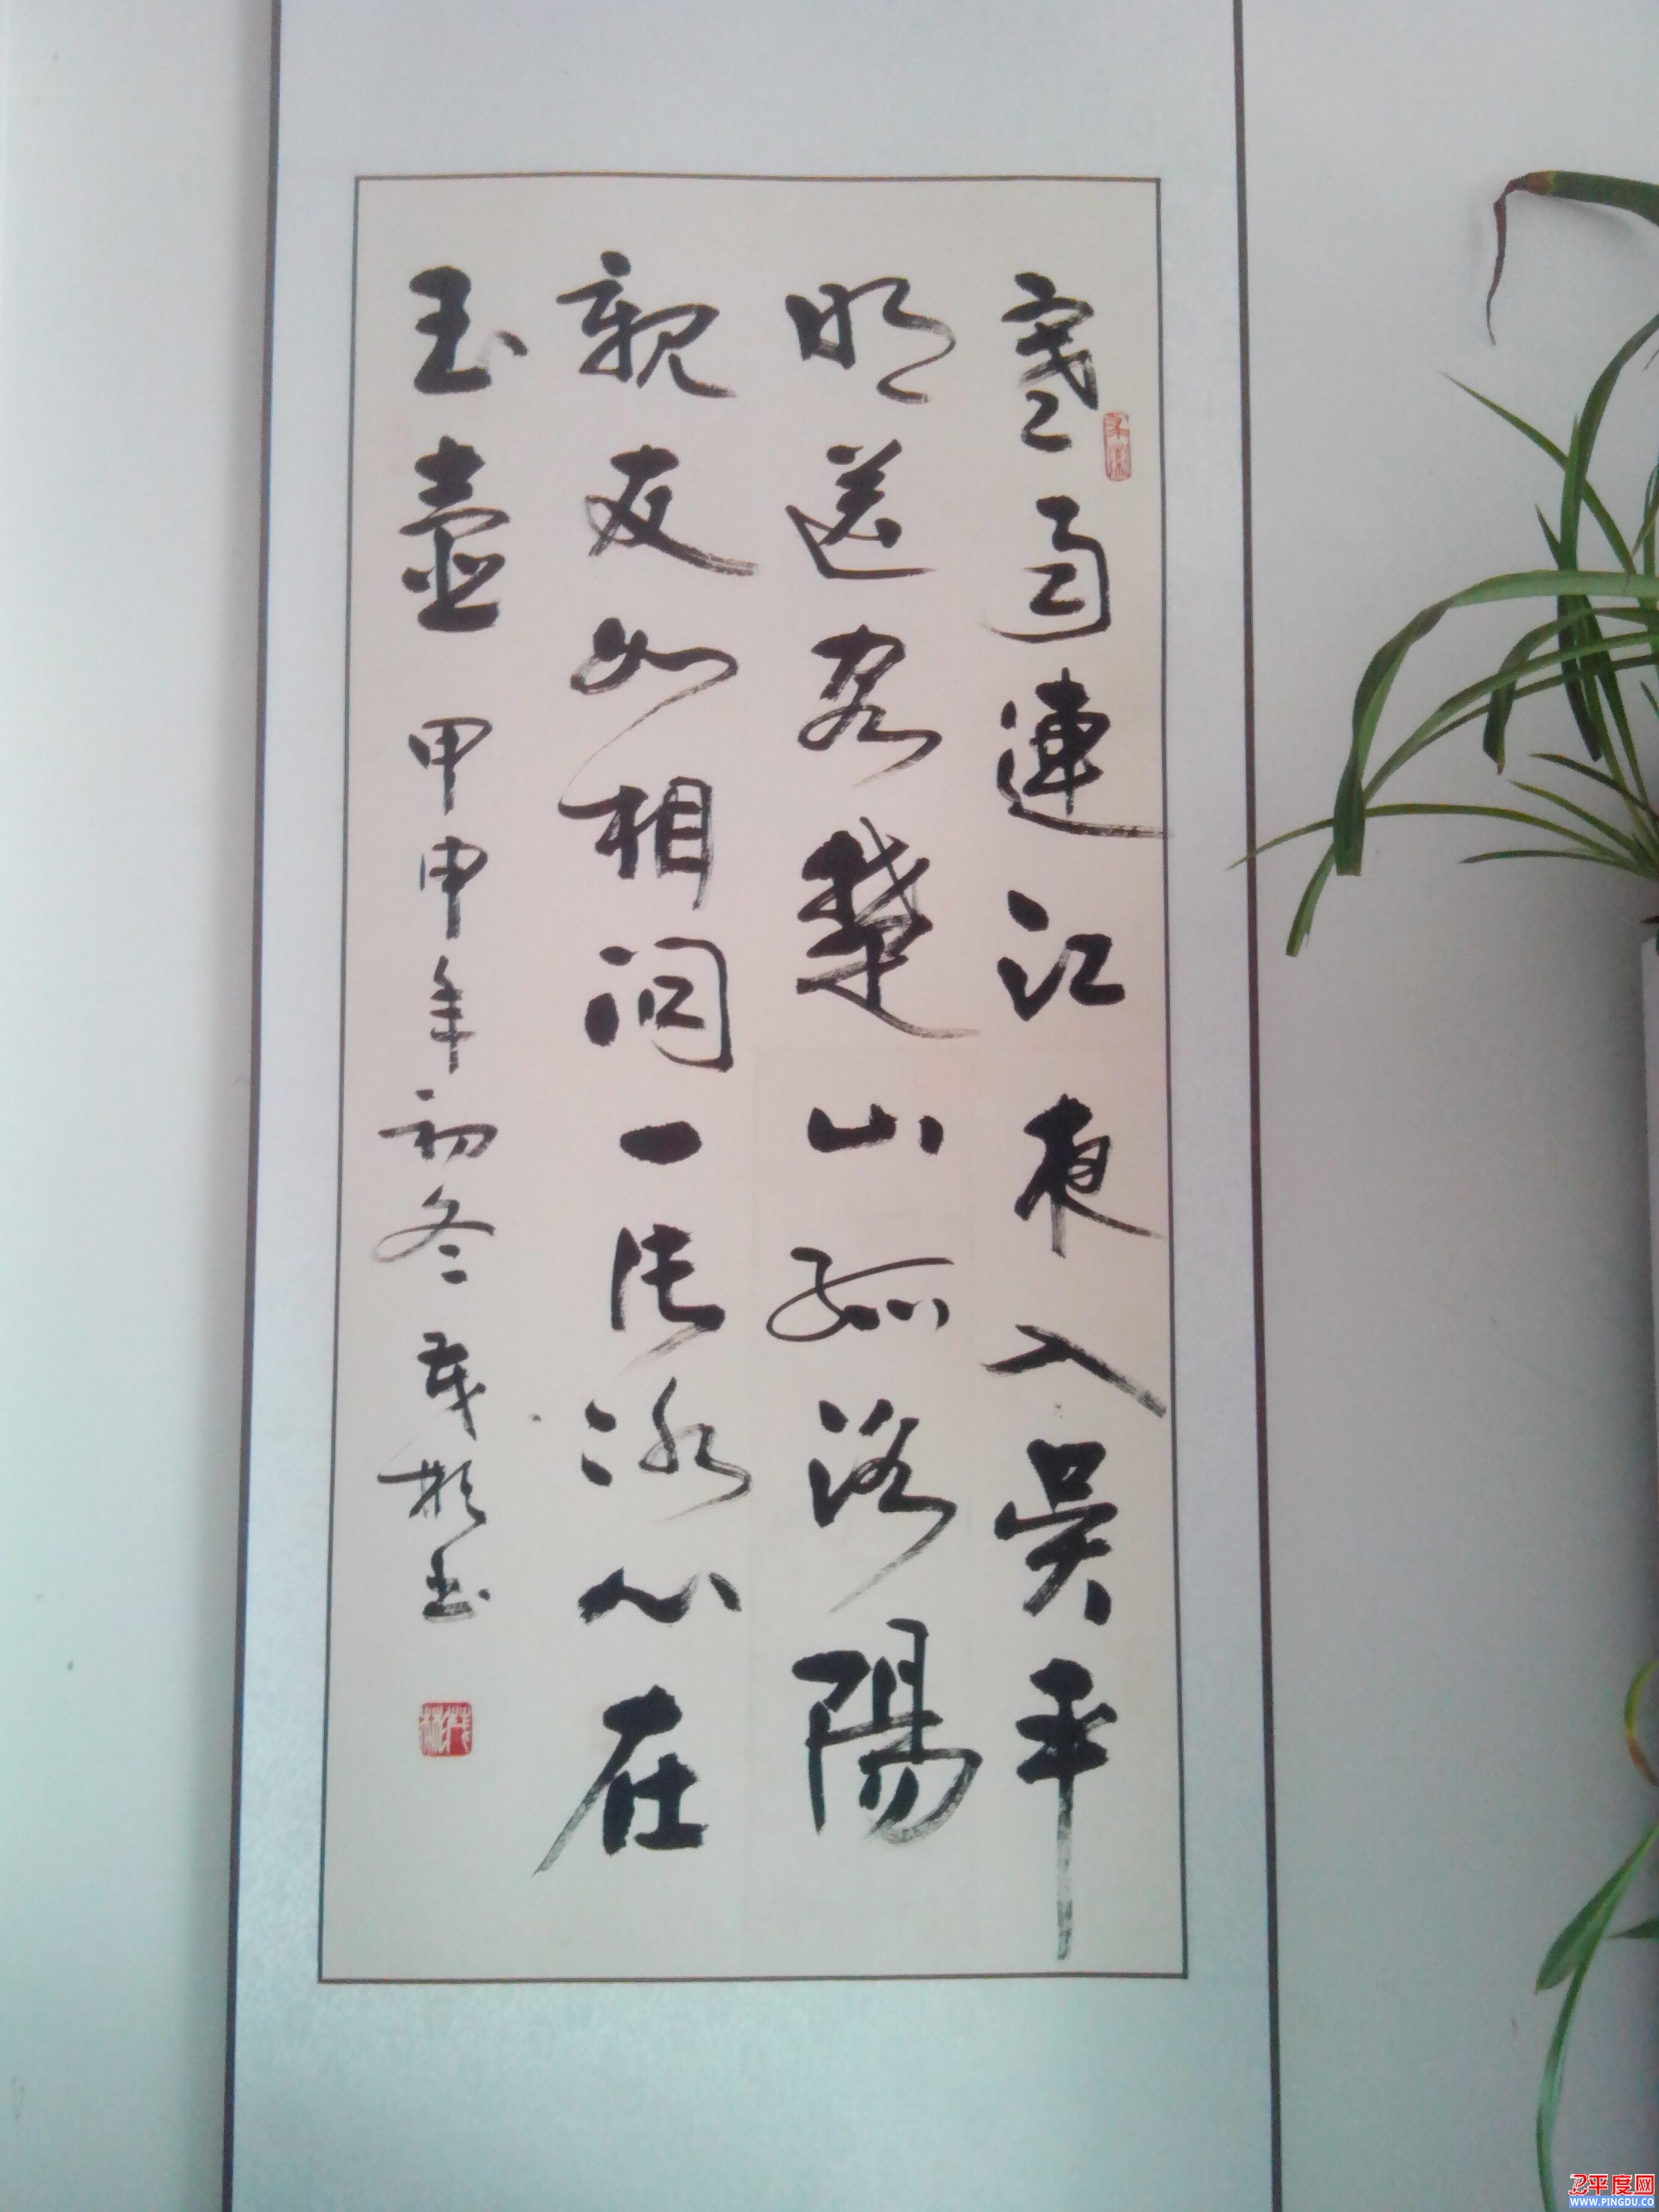 寒雨連江夜入吴平
明送客楚山孤洛陽
親友如相问一片冰心在
玉壺 甲申年初冬 茂彬书
平度网
WWW.PINGDU.CO